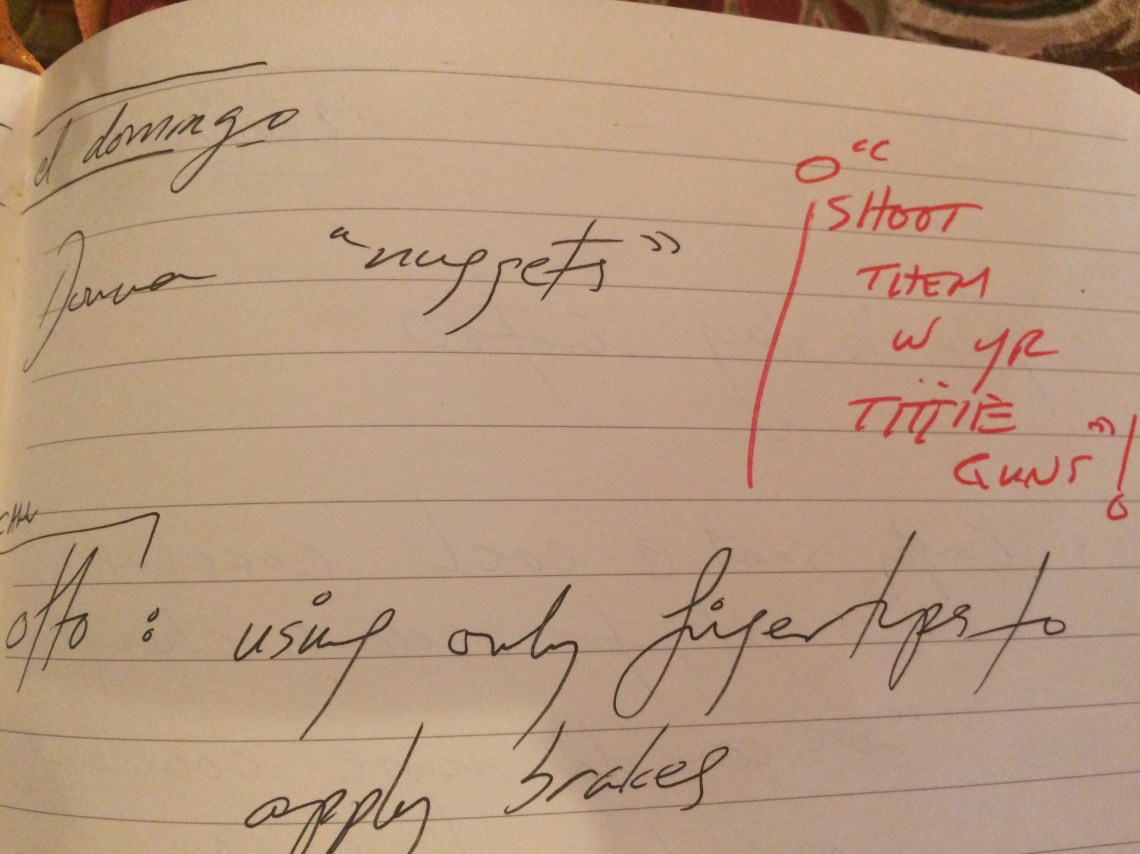 el domingo
Donna "nuggets"
0°C
SHOOT
THEM
W YR
TITTIE
GUNS"!
otto: using only fingertips to
apply brakes